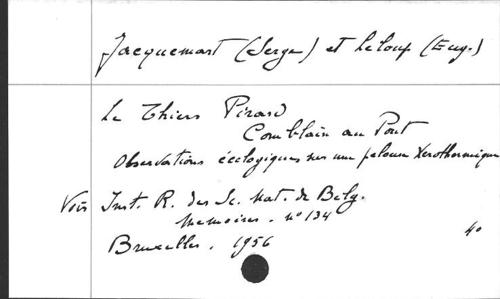 Jacquemart (Serge) et Leloup (Eug.)
Le Thiers Pirard
Comblain au Pont
Observations écologiques sur une pelouse xérothermique
Voir Inst. R. des Sc. Nat. de Belg.
Memoires. n° 134
Bruxelles. 1956
4°